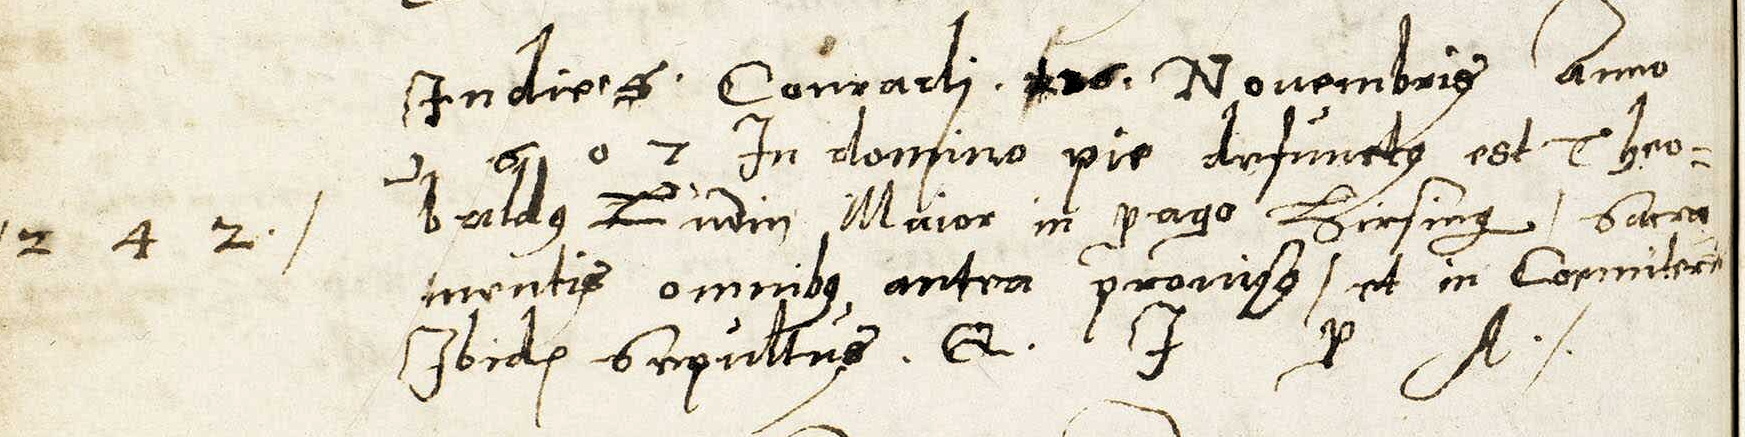 Indie S. Conradj. 26. Novembris Anno
1607 In domino pie defunctꝯ est Theo=
baldꝯ Maior in pago Hirsing / Sacra
242. / mentis omnibꝯ antea prouisꝯ / et in Coemiterio
Ibidē Sepultus. &. I P A./.